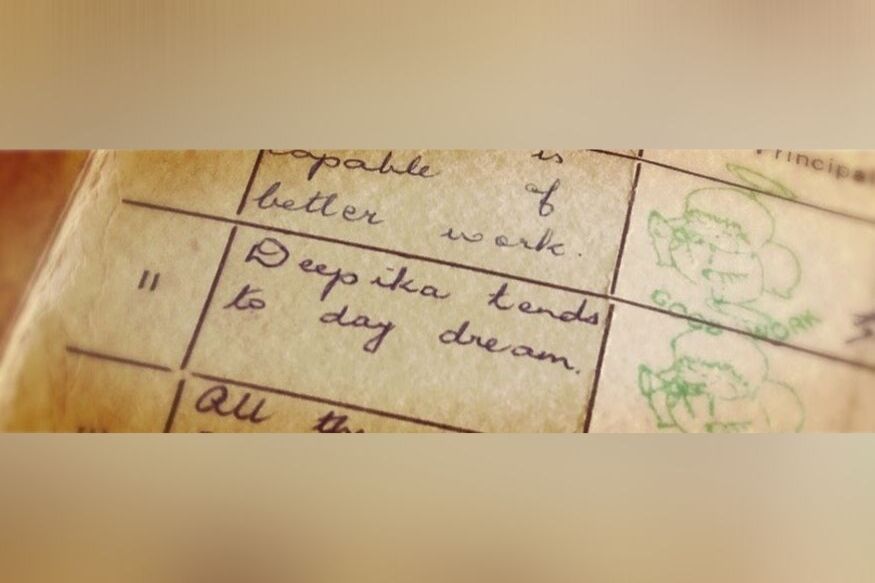 capable is of
better work.
Principal
II
Deepika tends
to day dream.
GOOD WORK
All